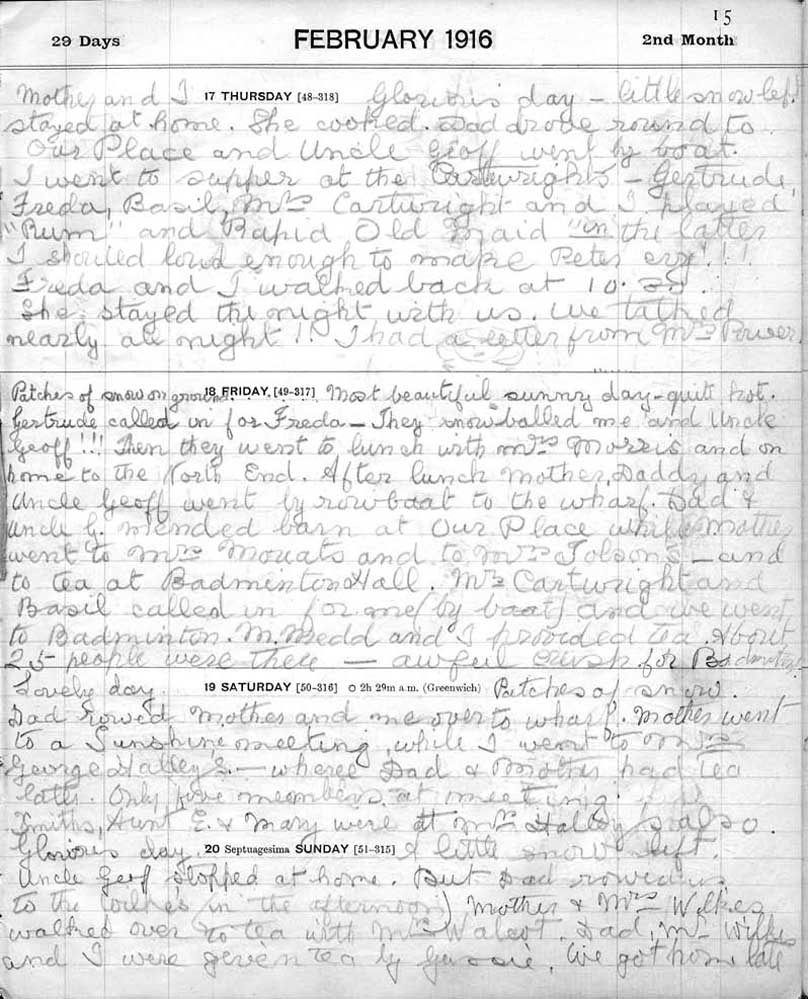 15
29 Days FEBRUARY 1916 2nd Month
Mother and I 17 THURSDAY [48-318] Glorious day - little snow left.
stayed at home. She cooked. Dad drove round to
Our Place and Uncle Geoff went by boat.
I went to supper at the Cartwrights - Gertrude,
Freda, Basil, Mrs Cartwright and I played
"Rum" and Rapid Old Maid "in the latter
I shouted loud enough to make Peter cry"!!!
Freda and I walked back at 10.30.
She stayed the night with us. We talked
nearly all night!! I had a letter from Mrs Power.
Patches of snow on ground. 18 FRIDAY. [49-317] Most beautiful sunny day - quite hot.
Gertrude called in for Freda - They snowballed me and Uncle
Geoff!!! Then they went to lunch with Mrs Morris and on
home to the North End. After lunch Mother, Daddy and
Uncle Geoff went by rowboat to the wharf. Dad &
Uncle G. mended barn at Our Place while Mother
went to Mrs Mouats and to Mrs Tolson's - and
to tea at Badminton Hall. Mrs Cartwright and
Basil called in for me (by boat) and we went
to Badminton. M. Medd and I provided tea. About
25 people were there - awful crush for Badminton
Lovely day. 19 SATURDAY [50-316] O 2h 29m a.m. (Greenwich) Patches of snow.
Dad rowed Mother and me over to wharf. Mother went
to a Sunshine meeting, while I went to Mrs
George Halley's. - where Dad & Mother had tea
later. Only five members at meeting.
Smiths, Aunt E. & Mary were at Mrs Halley's also.
Glorious day. 20 Septuagesima SUNDAY [51-315] A little snow left.
Uncle Geoff stopped at home. But Dad rowed us
to the Wilkes in the afternoon) Mother & Mrs Wilkes
walked over to tea with Mrs Walcot. Dad, Mr Wilkes
and I were given tea by Gussie. We got home late